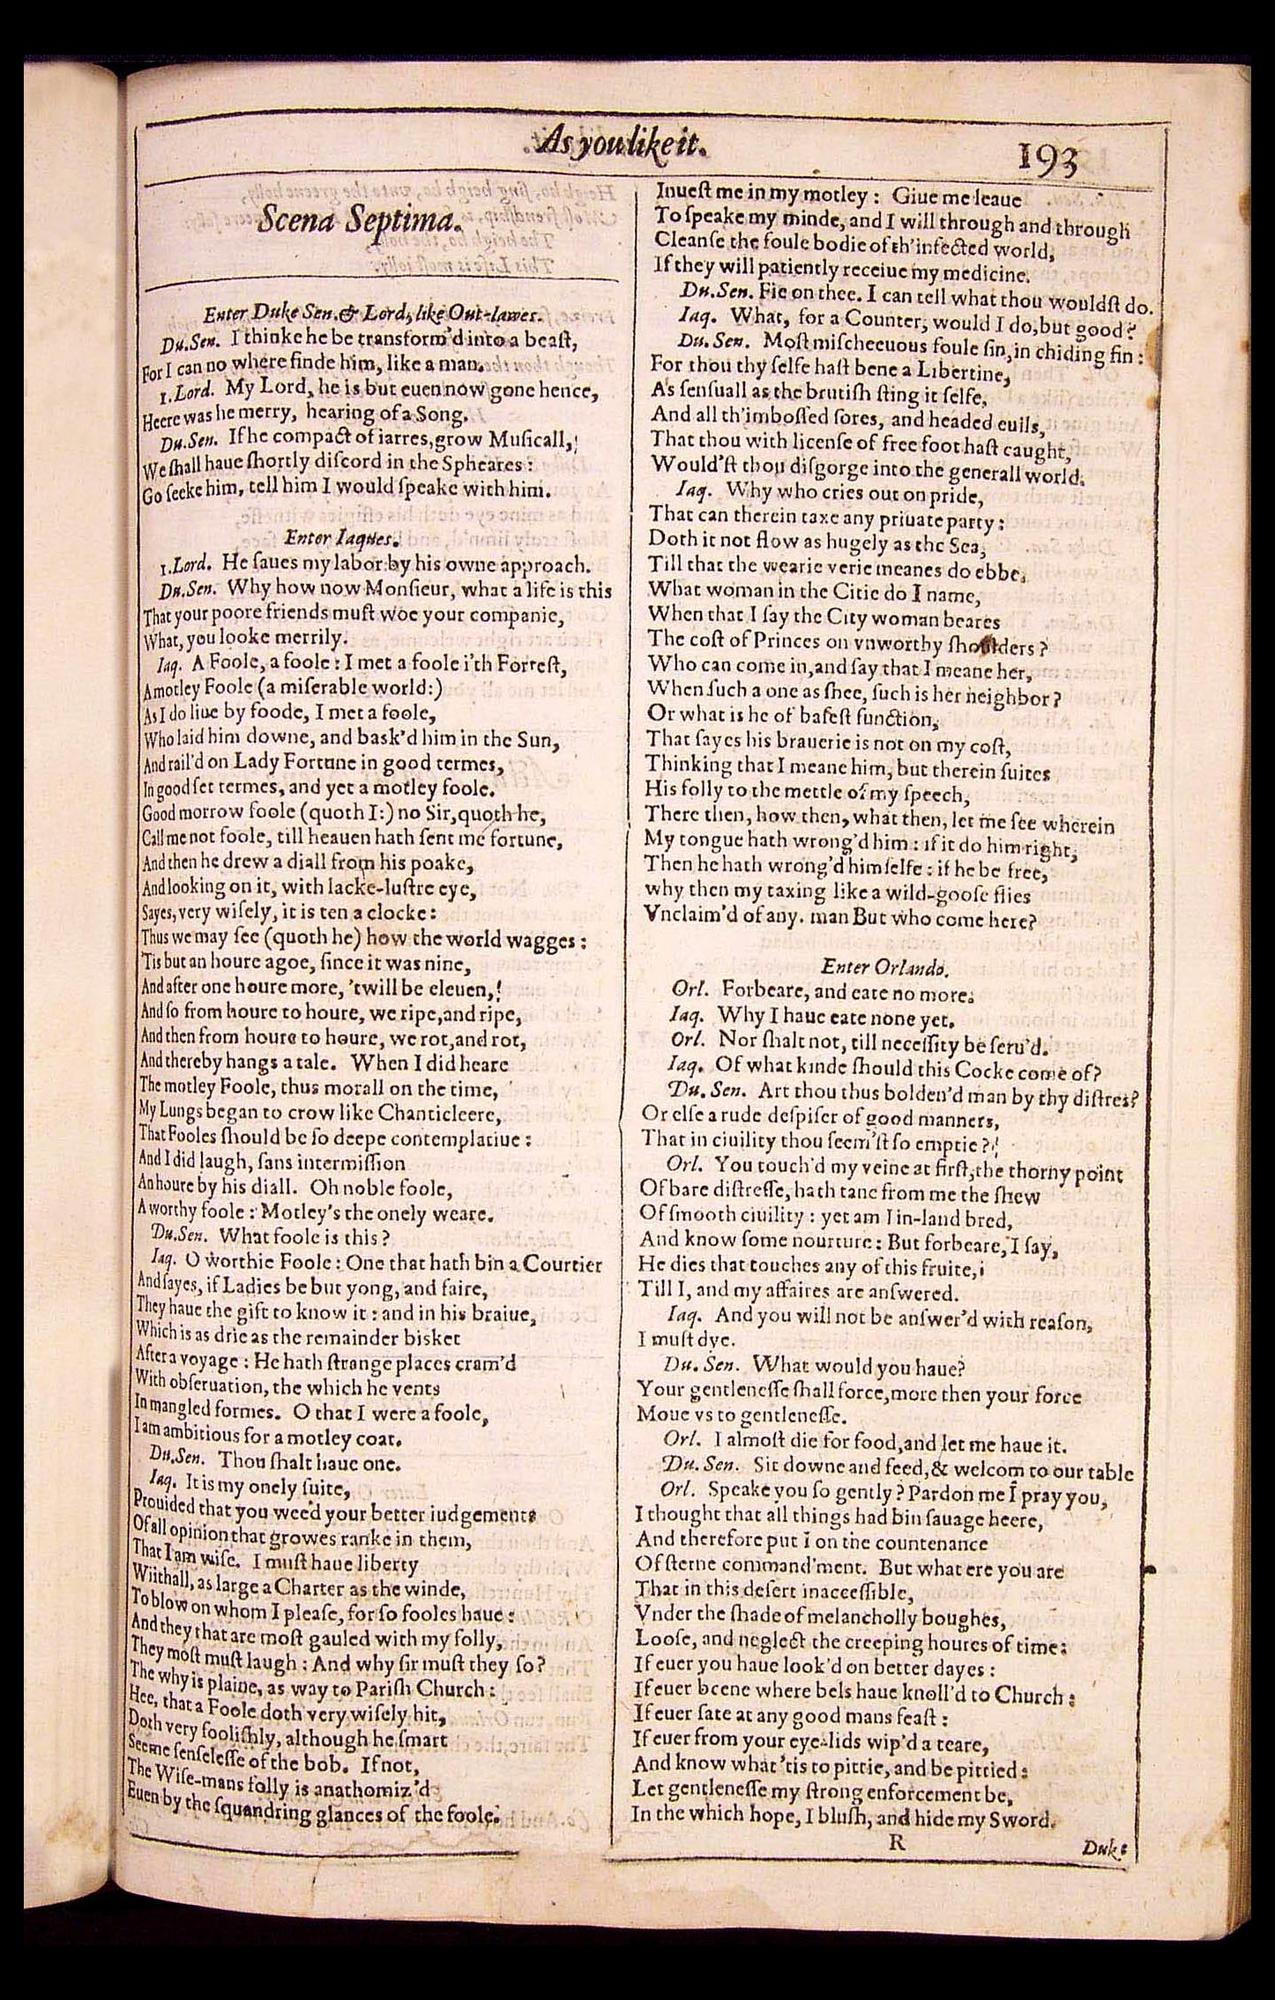 As you like it.
193
Scena Septima.
Enter Duke Sen. & Lord, like Out-lawes.
Du.Sen. I thinke he be transform'd into a beaſt,
For I can no where finde him, like a man.
1.Lord. My Lord, he is but euen now gone hence,
Heere was he merry, hearing of a Song.
Du.Sen. If he compact of iarres, grow Muſicall,
We ſhall haue ſhortly diſcord in the Spheares :
Go ſeeke him, tell him I would ſpeake with him.
Enter Iaques.
1.Lord. He ſaues my labor by his owne approach.
Du.Sen. Why how now Monſieur, what a life is this
That your poore friends muſt woe your companie,
What, you looke merrily.
Iaq. A Foole, a foole : I met a foole i'th Forreſt,
A motley Foole (a miſerable world:)
As I do liue by foode, I met a foole,
Who laid him downe, and bask'd him in the Sun,
And rail'd on Lady Fortune in good termes,
In good ſet termes, and yet a motley foole.
Good morrow foole (quoth I:) no Sir, quoth he,
Call me not foole, till heauen hath ſent me fortune,
And then he drew a diall from his poake,
And looking on it, with lacke-luſtre eye,
Sayes, very wiſely, it is ten a clocke :
Thus we may ſee (quoth he) how the world wagges :
'Tis but an houre agoe, ſince it was nine,
And after one houre more, 'twill be eleuen,
And ſo from houre to houre, we ripe, and ripe,
And then from houre to houre, we rot, and rot,
And thereby hangs a tale. When I did heare
The motley Foole, thus morall on the time,
My Lungs began to crow like Chanticleere,
That Fooles ſhould be ſo deepe contemplatiue :
And I did laugh, ſans intermiſſion
An houre by his diall. Oh noble foole,
A worthy foole : Motley's the onely weare.
Du.Sen. What foole is this ?
Iaq. O worthie Foole : One that hath bin a Courtier
And ſayes, if Ladies be but yong, and faire,
They haue the gift to know it : and in his braiue,
Which is as drie as the remainder bisket
After a voyage : He hath ſtrange places cram'd
With obſeruation, the which he vents
In mangled formes. O that I were a foole,
I am ambitious for a motley coat.
Du.Sen. Thou ſhalt haue one.
Iaq. It is my onely ſuite,
Prouided that you weed your better iudgements
Of all opinion that growes ranke in them,
That I am wiſe. I muſt haue liberty
Wiithall, as large a Charter as the winde,
To blow on whom I pleaſe, for ſo fooles haue :
And they that are moſt gauled with my folly,
They moſt muſt laugh : And why ſir muſt they ſo ?
The why is plaine, as way to Pariſh Church :
Hee, that a Foole doth very wiſely hit,
Doth very fooliſhly, although he ſmart
Seeme ſenſeleſſe of the bob. If not,
The Wiſe-mans folly is anathomiz'd
Euen by the ſquandring glances of the foole.
Inueſt me in my motley : Giue me leaue
To ſpeake my minde, and I will through and through
Cleanſe the foule bodie of th'infected world,
If they will patiently receiue my medicine.
Du.Sen. Fie on thee. I can tell what thou wouldſt do.
Iaq. What, for a Counter, would I do, but good ?
Du.Sen. Moſt miſcheeuous foule ſin, in chiding ſin :
For thou thy ſelfe haſt bene a Libertine,
As ſenſuall as the brutiſh ſting it ſelfe,
And all th'imboſſed ſores, and headed euils,
That thou with licenſe of free foot haſt caught,
Would'ſt thou diſgorge into the generall world.
Iaq. Why who cries out on pride,
That can therein taxe any priuate party :
Doth it not flow as hugely as the Sea,
Till that the wearie verie meanes do ebbe.
What woman in the Citie do I name,
When that I ſay the City woman beares
The coſt of Princes on vnworthy ſhoulders ?
Who can come in, and ſay that I meane her,
When ſuch a one as ſhee, ſuch is her neighbor ?
Or what is he of baſeſt function,
That ſayes his brauerie is not on my coſt,
Thinking that I meane him, but therein ſuites
His folly to the mettle of my ſpeech,
There then, how then, what then, let me ſee wherein
My tongue hath wrong'd him : if it do him right,
Then he hath wrong'd himſelfe : if he be free,
why then my taxing like a wild-gooſe flies
Vnclaim'd of any. man But who come here ?
Enter Orlando.
Orl. Forbeare, and eate no more.
Iaq. Why I haue eate none yet.
Orl. Nor ſhalt not, till neceſſity be ſeru'd.
Iaq. Of what kinde ſhould this Cocke come of ?
Du.Sen. Art thou thus bolden'd man by thy diſtres ?
Or elſe a rude deſpiſer of good manners,
That in ciuility thou ſeem'ſt ſo emptie ?
Orl. You touch'd my veine at firſt, the thorny point
Of bare diſtreſſe, hath tane from me the ſhew
Of ſmooth ciuility : yet am I in-land bred,
And know ſome nourture : But forbeare, I ſay,
He dies that touches any of this fruite,
Till I, and my affaires are anſwered.
Iaq. And you will not be anſwer'd with reaſon,
I muſt dye.
Du.Sen. What would you haue ?
Your gentleneſſe ſhall force, more then your force
Moue vs to gentleneſſe.
Orl. I almoſt die for food, and let me haue it.
Du.Sen. Sit downe and feed, & welcom to our table
Orl. Speake you ſo gently ? Pardon me I pray you,
I thought that all things had bin ſauage heere,
And therefore put I on the countenance
Of ſterne command'ment. But what ere you are
That in this deſert inacceſſible,
Vnder the ſhade of melancholly boughes,
Looſe, and neglect the creeping houres of time :
If euer you haue look'd on better dayes :
If euer beene where bels haue knoll'd to Church :
If euer ſate at any good mans feaſt :
If euer from your eye-lids wip'd a teare,
And know what 'tis to pittie, and be pittied :
Let gentleneſſe my ſtrong enforcement be,
In the which hope, I bluſh, and hide my Sword.
R
Duke